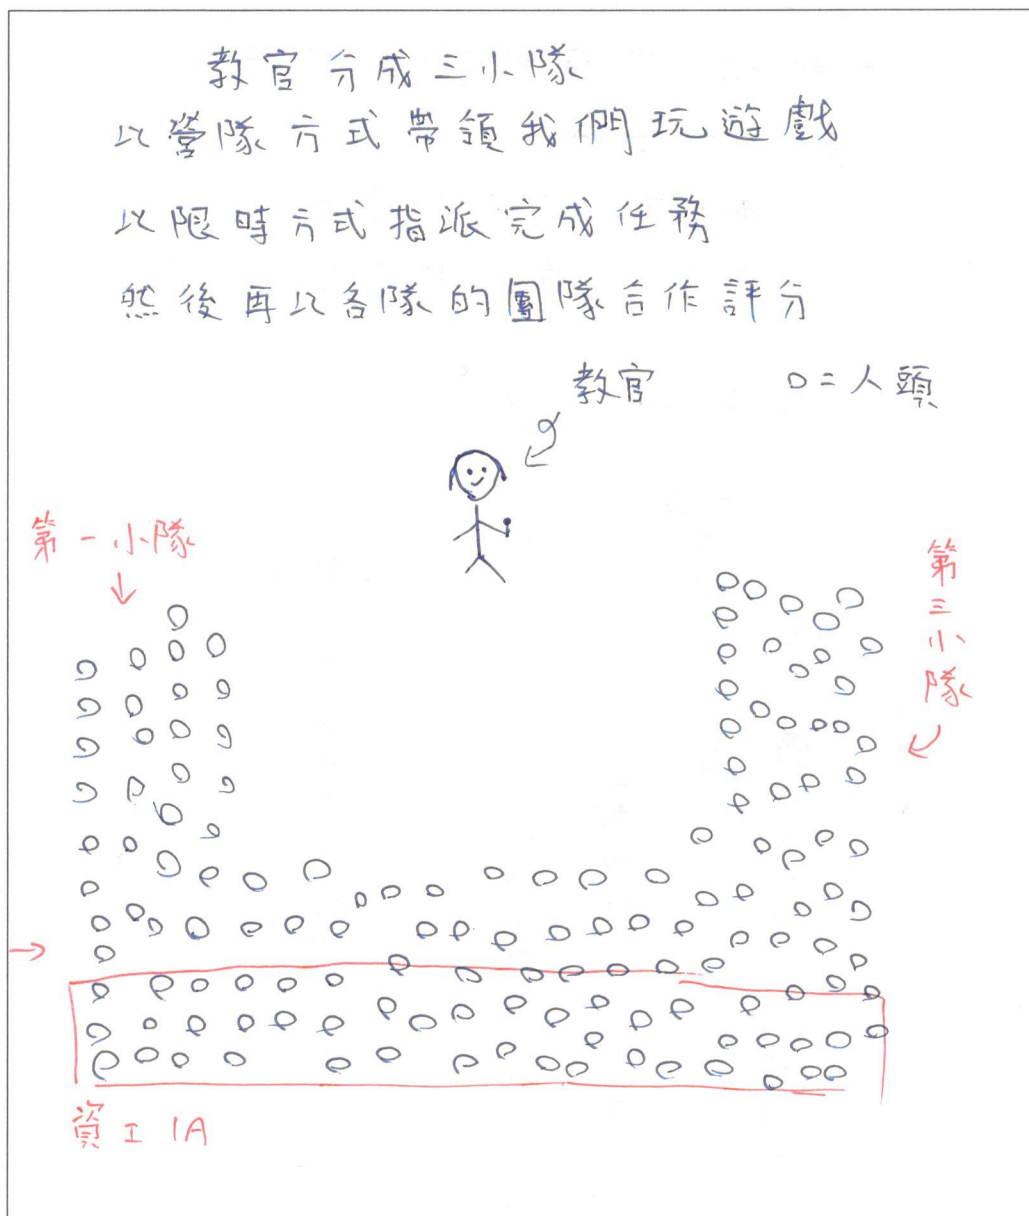 教官分成三小隊
以營隊方式帶領我們玩遊戲
以限時方式指派完成任務
然後再以各隊的團隊合作評分
教官
O=人頭
第一小隊
第三小隊
資工1A